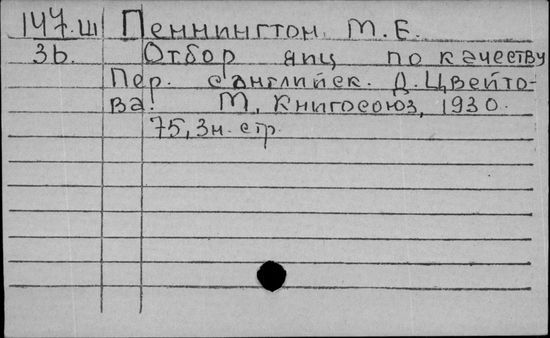 147.Ш Пеннингтон, М.Е.
3б. Отбор яиц по качеству
Пер. с английск. Д. Цвейто-
ва. М., Книгосоюз, 1930.
75, 3н. стр.